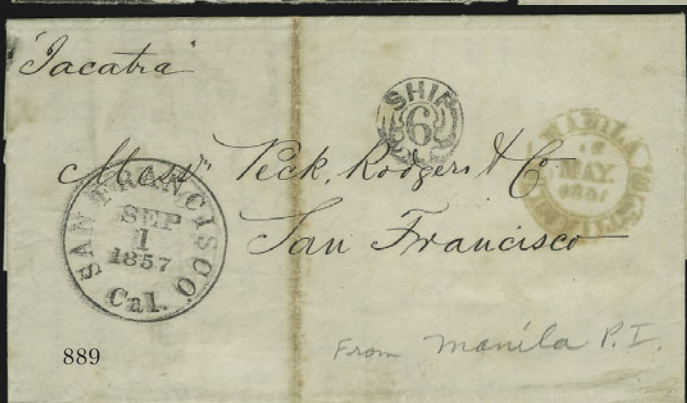 "Jacatra"
SHIP
6
MANILA
MAY.
Mess^rs Peck, Rodgers & Co
San Francisco
SAN FRANCISCO
SEP
1
1857
Cal.
889
From Manila P.I.